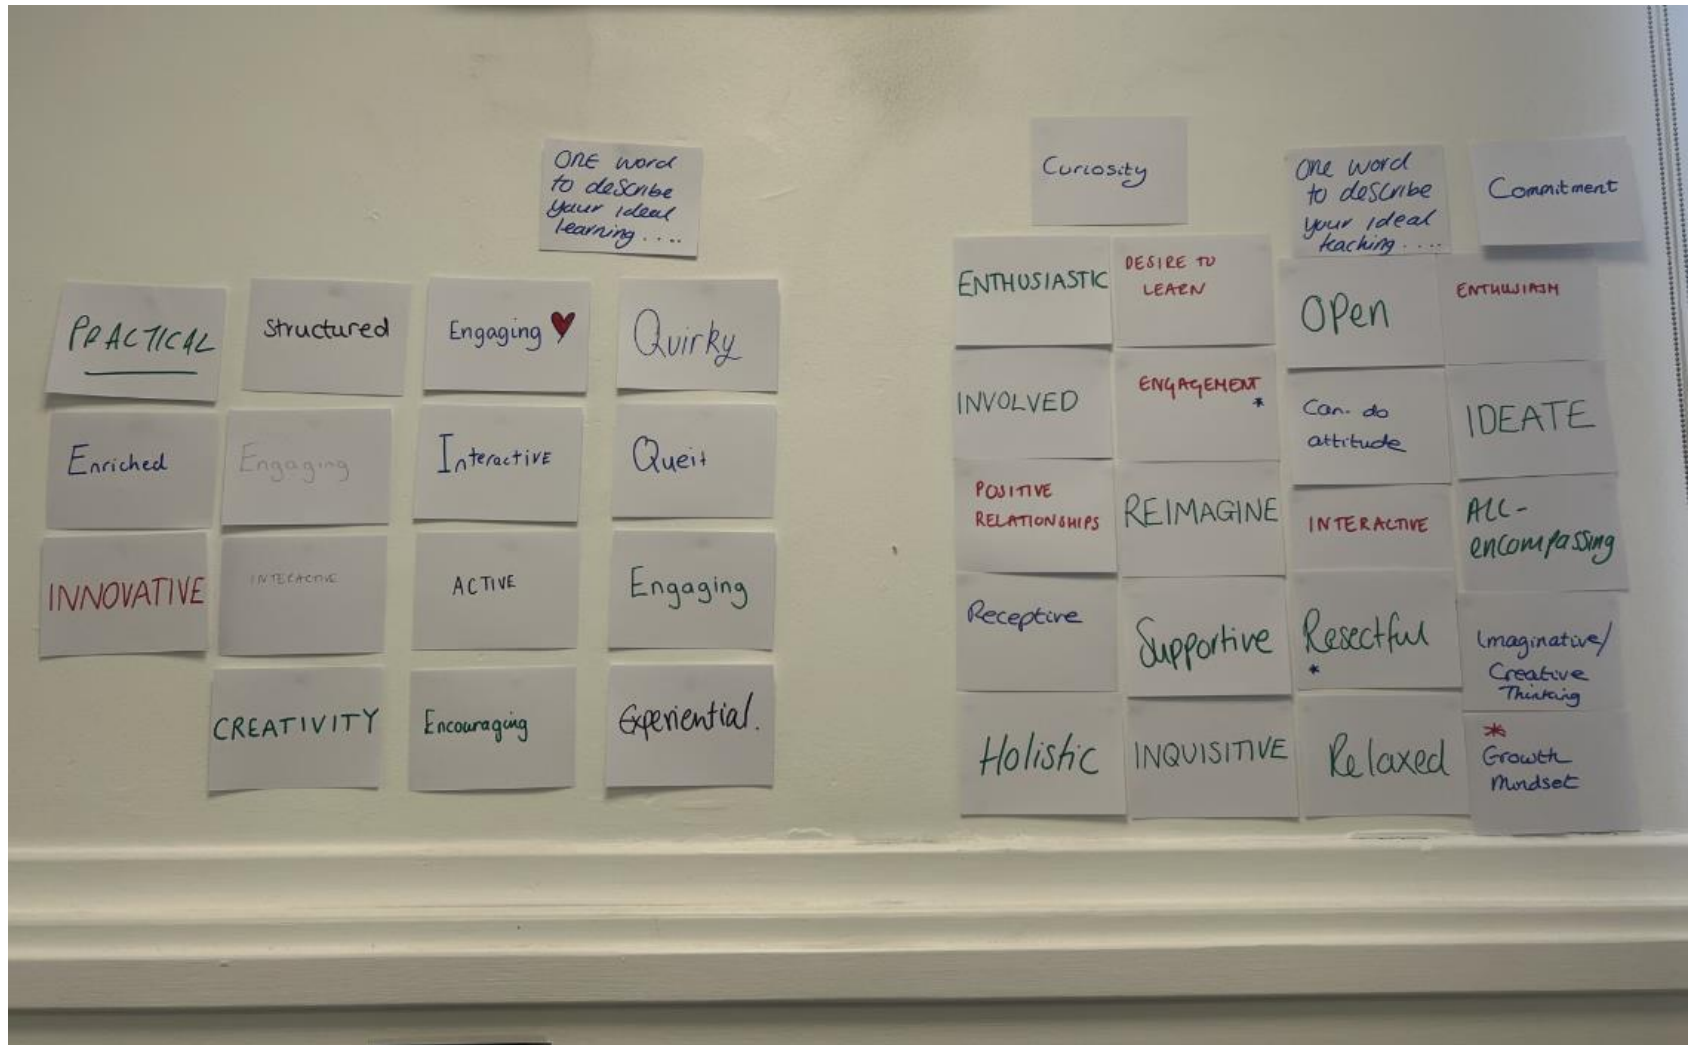 ONE word
to describe
your ideal
learning....
PRACTICAL
Structured
Engaging
Quirky
Enriched
Engaging
Interactive
Queit
INNOVATIVE
INTERACTIVE
ACTIVE
Engaging
CREATIVITY
Encouraging
Experiential.
Curiosity
One word
to describe
your ideal
teaching....
Commitment
ENTHUSIASTIC
DESIRE TO
LEARN
OPen
ENTHUSIASM
INVOLVED
ENGAGEMENT
*
Can-do
attitude
IDEATE
POSITIVE
RELATIONSHIPS
REIMAGINE
INTERACTIVE
ALL-
encompassing
Receptive
Supportive
Resectful
*
Imaginative/
Creative
Thinking
Holistic
INQUISITIVE
Relaxed
*
Growth
Mindset